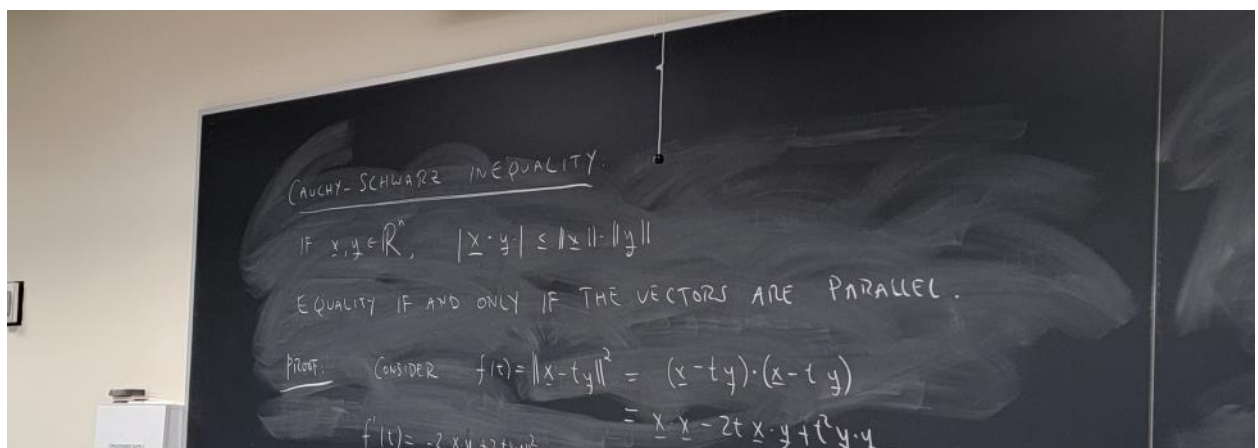 CAUCHY-SCHWARZ INEQUALITY.
IF x, y ∈ ℝⁿ, |x · y| ≤ ||x|| · ||y||
EQUALITY IF AND ONLY IF THE VECTORS ARE PARALLEL.
PROOF: CONSIDER f(t) = ||x - ty||² = (x - ty) · (x - ty)
= x · x - 2t x · y + t² y · y
f'(t) = -2 x · y + 2t